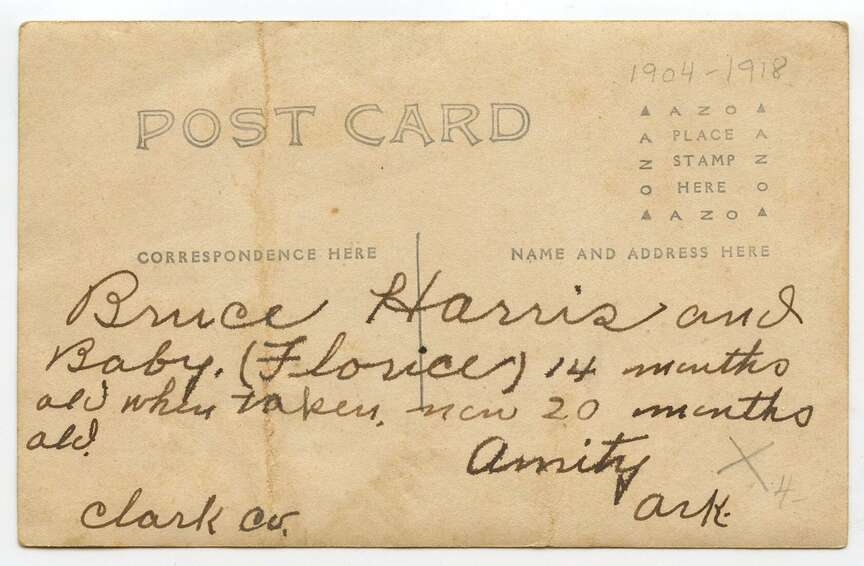 1904-1918
POST CARD
▲ AZO ▲
A PLACE A
Z STAMP Z
O HERE O
▲ AZO ▲
CORRESPONDENCE HERE
NAME AND ADDRESS HERE
Bruce Harris and
Baby. (Florice) 14 months
old when taken, now 20 months
old.
Amity
Ark.
Clark Co.
X 4-